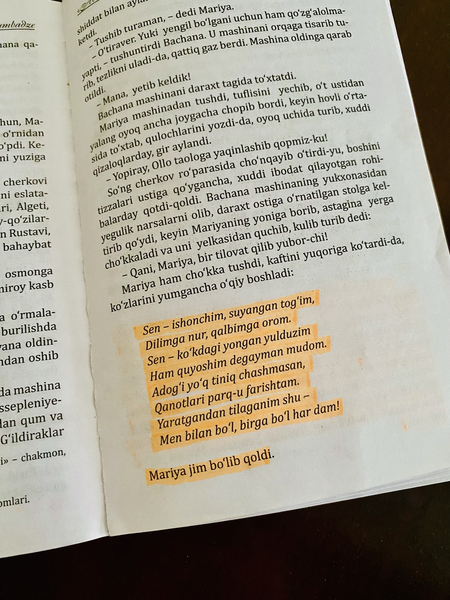 ambadze
ana qa-
hun, Ma-
o‘rnidan
o‘pdi. Ke-
ni yuziga
cherkovi
ni eslata-
ri, Algeti,
y-qo‘zilar-
Rustavi,
bahaybat
osmonga
niroy kasb
a o‘rmala-
burilishda
vana oldin-
ndan oshib
da mashina
ssepleniye-
dan qum va
G‘ildiraklar
i» – chakmon,
omlari.
shiddat bilan
ketdi.
– Tushib turaman, – dedi Mariya.
– O‘tiraver. Yuki yengil bo‘lgani uchun ham qo‘zg‘alolma-
yapti, – tushuntirdi Bachana. U mashinani orqaga tisarib tu-
rib, tezlikni uladi-da, qattiq gaz berdi. Mashina oldinga qarab
otildi.
– Mana, yetib keldik!
Bachana mashinani daraxt tagida to‘xtatdi.
Mariya mashinadan tushdi, tuflisini yechib, o‘t ustidan
yalang oyoq ancha joygacha chopib bordi, keyin hovli o‘rta-
sida to‘xtab, qulochlarini yozdi-da, oyoq uchida turib, xuddi
qizaloqlarday, gir aylandi.
– Yopiray, Ollo taologa yaqinlashib qopmiz-ku!
So‘ng cherkov ro‘parasida cho‘nqayib o‘tirdi-yu, boshini
tizzalari ustiga qo‘ygancha, xuddi ibodat qilayotgan rohi-
balarday qotdi-qoldi. Bachana mashinaning yukxonasidan
yegulik narsalarni olib, daraxt ostiga o‘rnatilgan stolga kel-
tirib qo‘ydi, keyin Mariyaning yoniga borib, astagina yerga
cho‘kkaladi va uni yelkasidan quchib, kulib turib dedi:
– Qani, Mariya, bir tilovat qilib yubor-chi!
Mariya ham cho‘kka tushdi, kaftini yuqoriga ko‘tardi-da,
ko‘zlarini yumgancha o‘qiy boshladi:
Sen – ishonchim, suyangan tog‘im,
Dilimga nur, qalbimga orom.
Sen – ko‘kdagi yongan yulduzim
Ham quyoshim degayman mudom.
Adog‘i yo‘q tiniq chashmasan,
Qanotlari parq-u farishtam.
Yaratgandan tilaganim shu –
Men bilan bo‘l, birga bo‘l har dam!
Mariya jim bo‘lib qoldi.